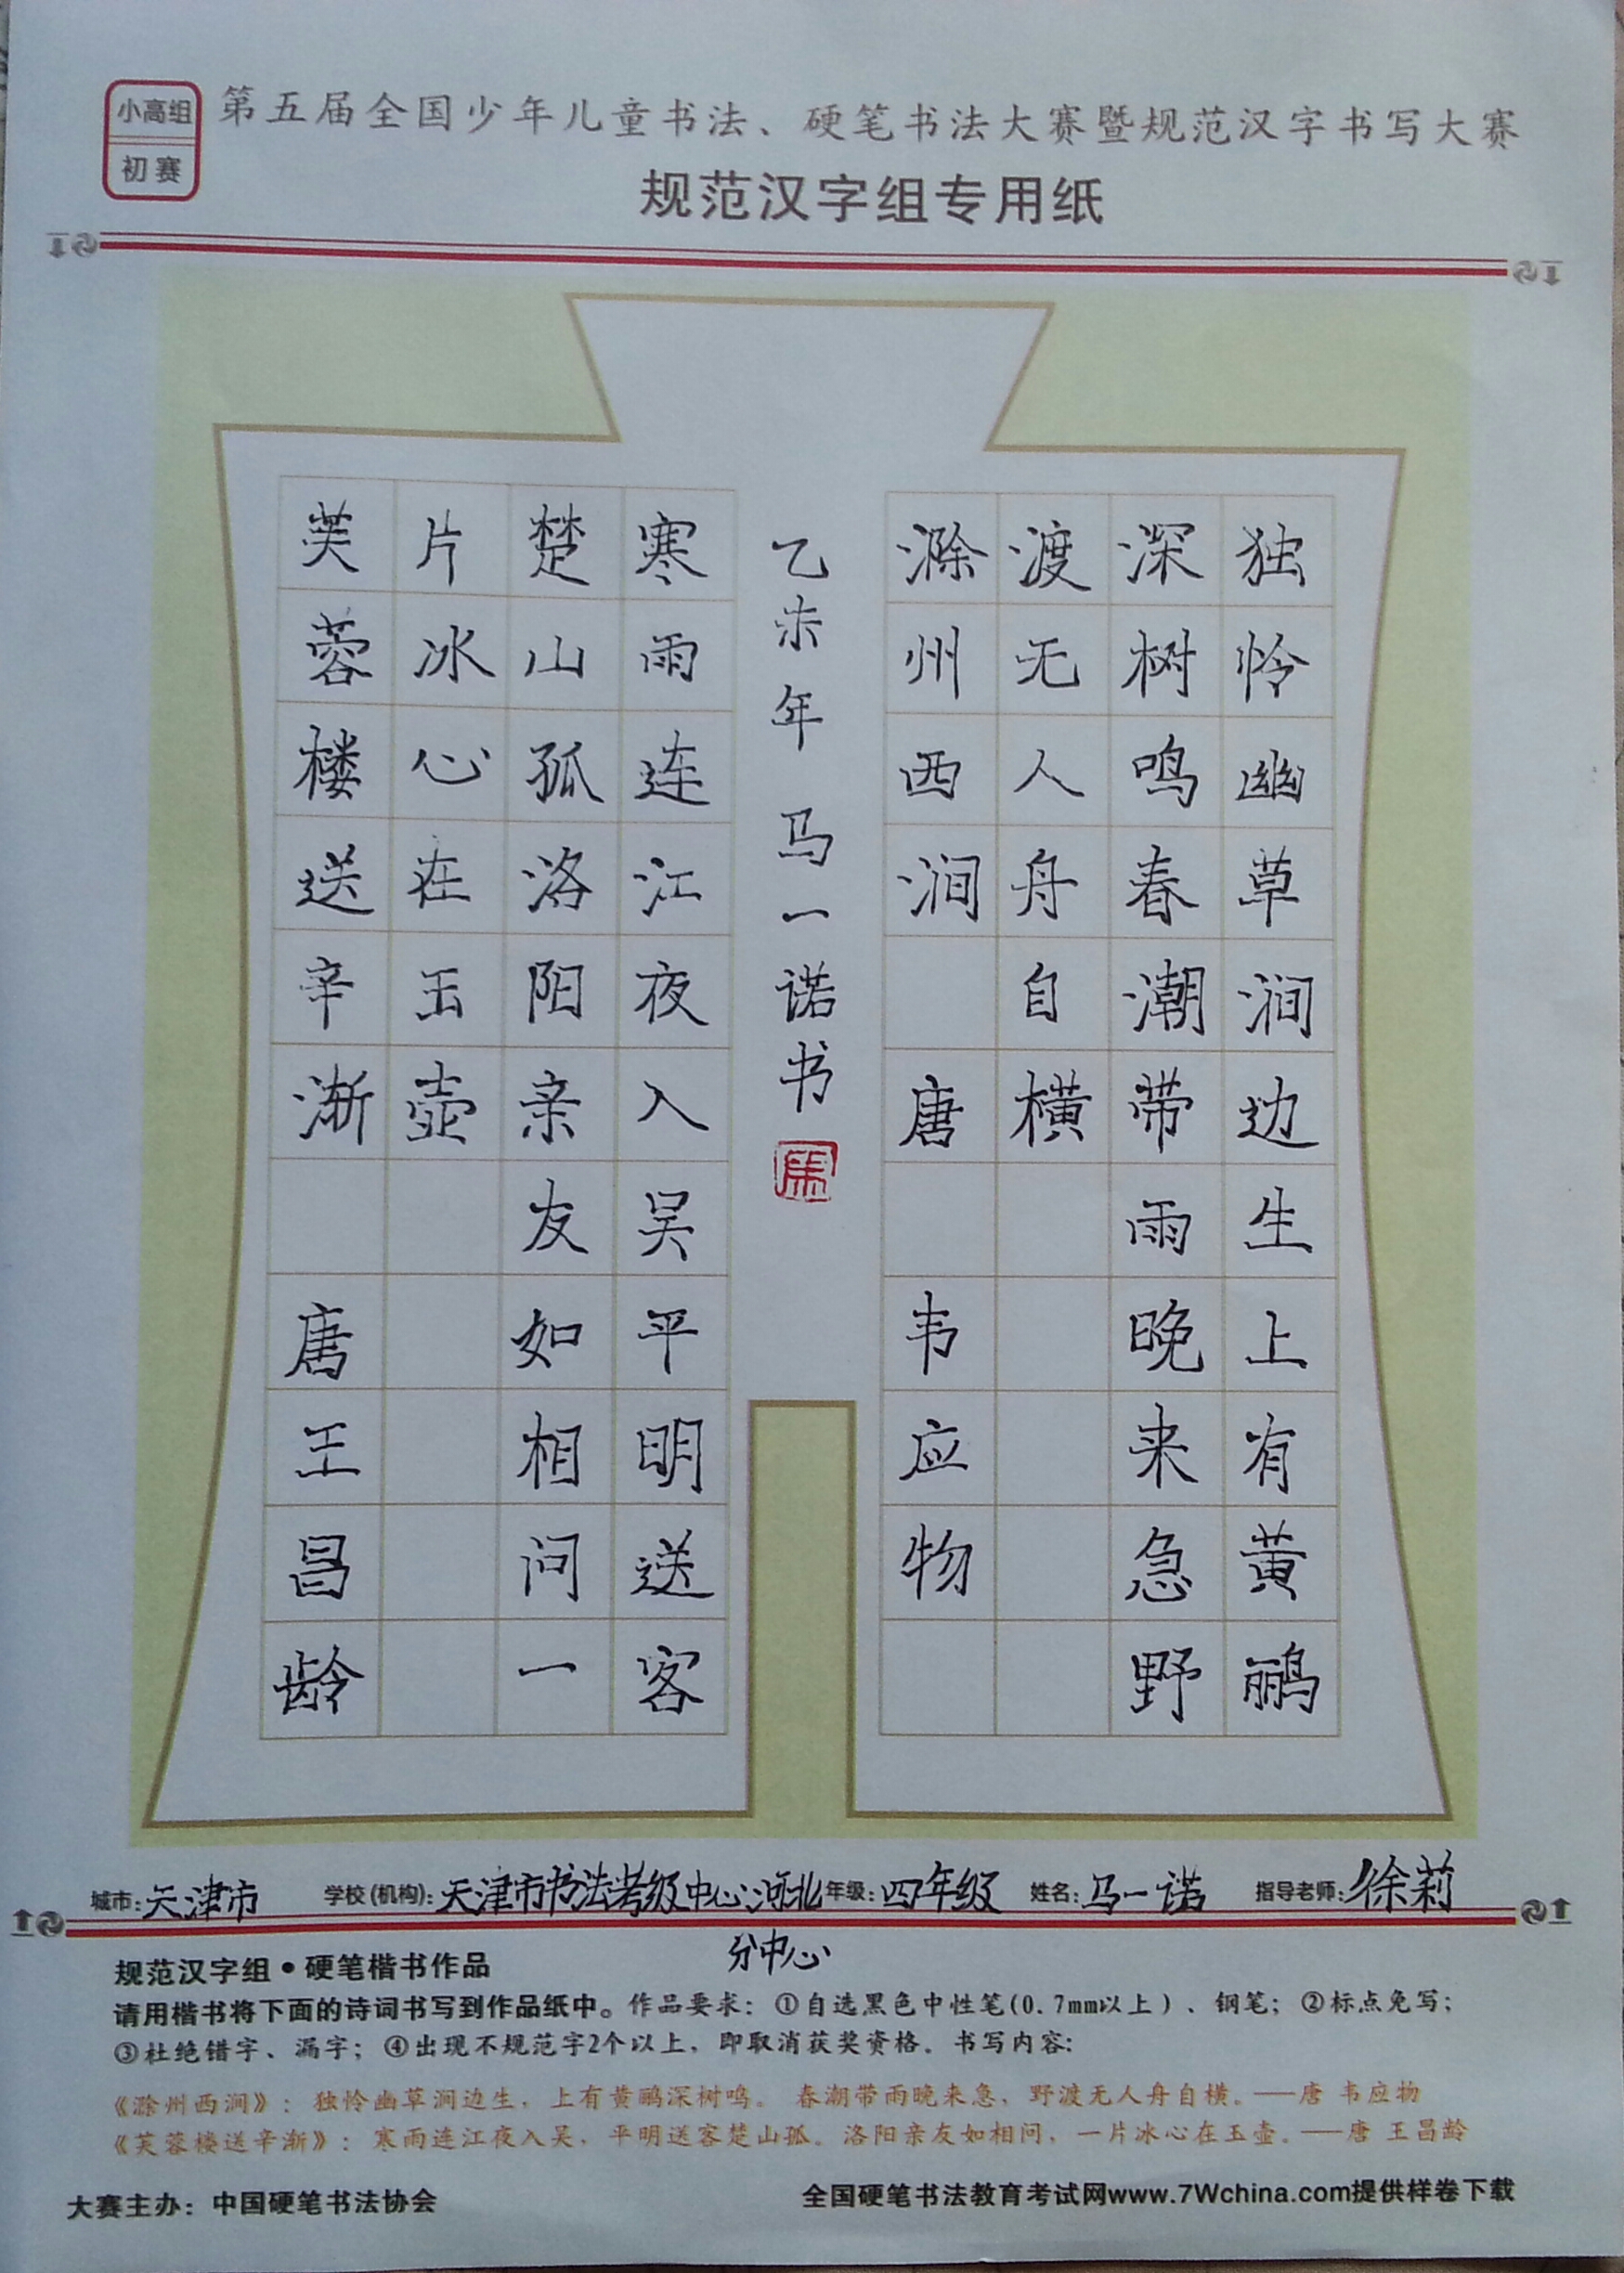 小高组
初赛
第五届全国少年儿童书法、硬笔书法大赛暨规范汉字书写大赛
规范汉字组专用纸
独怜幽草涧边生上有黄鹂
深树鸣春潮带雨晚来急野
渡无人舟自横
滁州西涧 唐 韦应物
乙未年 马一诺书
馬
寒雨连江夜入吴平明送客
楚山孤洛阳亲友如相问一
片冰心在玉壶
芙蓉楼送辛渐 唐王昌龄
城市：天津市 学校(机构)：天津市书法考级中心河北 年级：四年级 姓名：马一诺 指导老师：徐莉
分中心
规范汉字组·硬笔楷书作品
请用楷书将下面的诗词书写到作品纸中。作品要求：①自选黑色中性笔(0.7mm以上)、钢笔；②标点免写；
③杜绝错字、漏字；④出现不规范字2个以上，即取消获奖资格。书写内容：
《滁州西涧》：独怜幽草涧边生，上有黄鹂深树鸣。 春潮带雨晚来急，野渡无人舟自横。——唐 韦应物
《芙蓉楼送辛渐》：寒雨连江夜入吴，平明送客楚山孤。洛阳亲友如相问，一片冰心在玉壶。——唐 王昌龄
大赛主办：中国硬笔书法协会 全国硬笔书法教育考试网www.7Wchina.com提供样卷下载